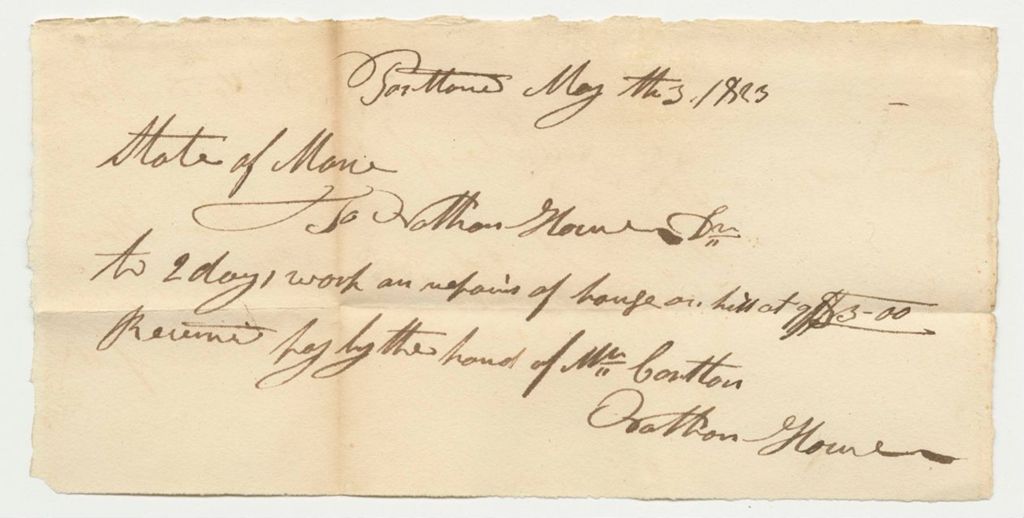 Portland May th 3. 1823
State of Maine
To Nathan Howe Dr
to 2 days work on repairs of house on hill at 9/ $3-00
Received pay by the hand of Mr Carlton
Nathan Howe